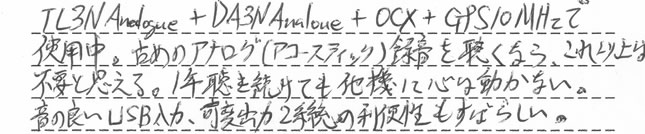 TL3N Analogue + DA3N Analoue + OCX + GPS10MHzで
使用中。古めのアナログ(アコースティック)録音を聴くなら、これ以上は
不要と思える。1年聴き続けても他機に心は動かない。
音の良いUSB入力、可変出力2系統の利便性もすばらしい。